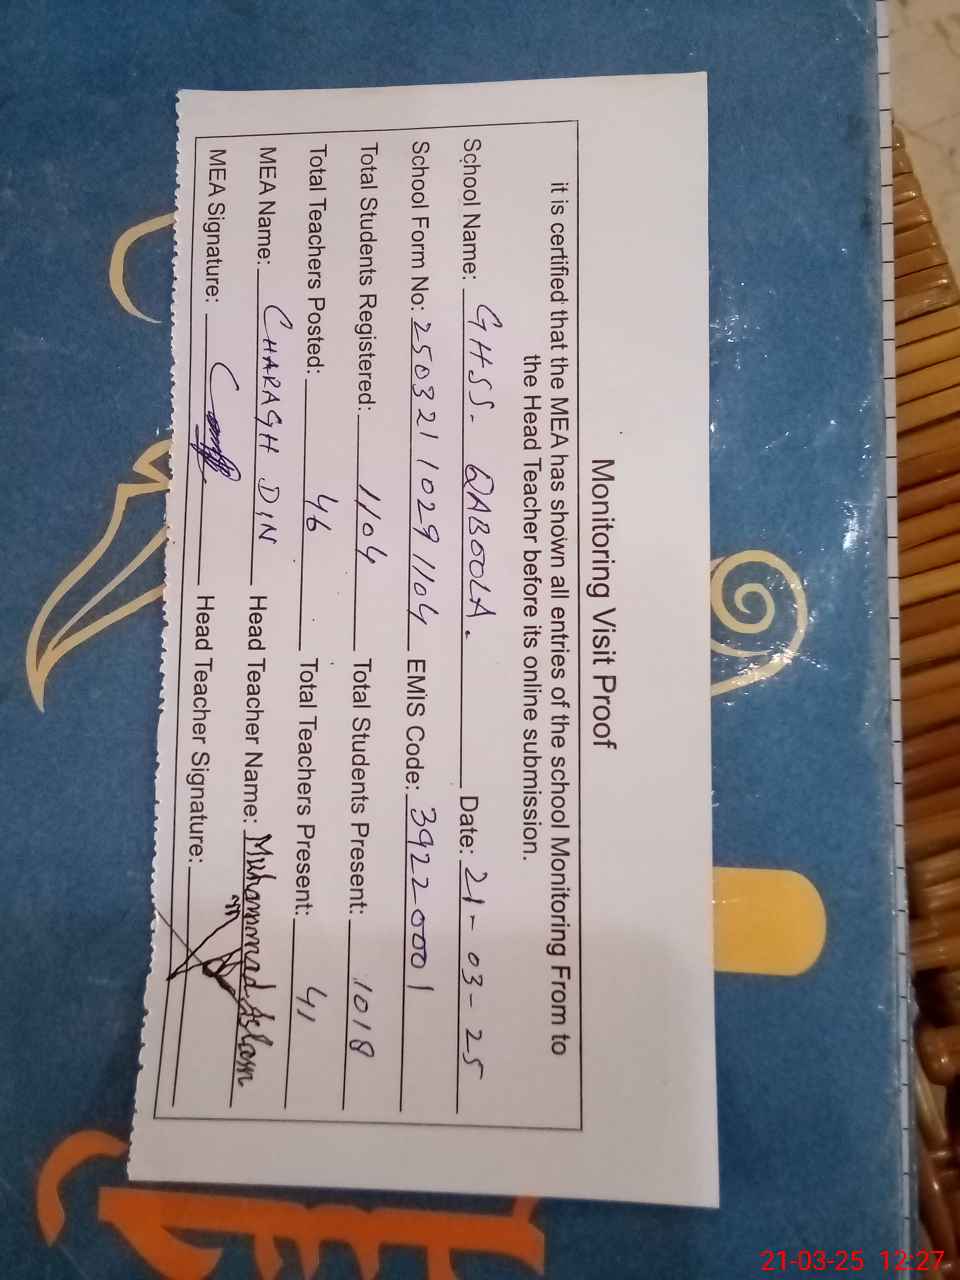 Monitoring Visit Proof
it is certified that the MEA has shown all entries of the school Monitoring From to
the Head Teacher before its online submission.
School Name: GHSS- QABOOLA. Date: 21-03-25
School Form No: 250321 1029 1104 EMIS Code: 39220001
Total Students Registered: 1104 Total Students Present: 1018
Total Teachers Posted: 46 Total Teachers Present: 41
MEA Name: CHARAGH DIN Head Teacher Name: Muhammad Aslam
MEA Signature: Head Teacher Signature:
21-03-25 12:27